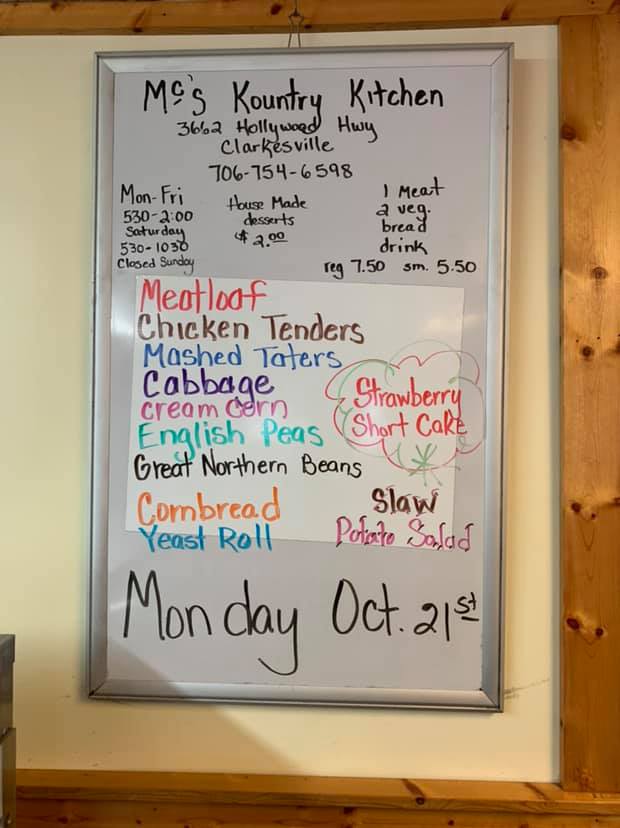 Mc's Kountry Kitchen
3662 Hollywood Hwy
Clarkesville
706-754-6598
Mon-Fri
530-2:00
Saturday
530-1030
Closed Sunday
House Made
desserts
$2.00
1 Meat
2 veg.
bread
drink
reg 7.50 sm. 5.50
Meatloaf
Chicken Tenders
Mashed Taters
Cabbage
cream corn
English Peas
Great Northern Beans
Strawberry
Short Cake
Cornbread
Yeast Roll
Slaw
Potato Salad
Monday Oct. 21st